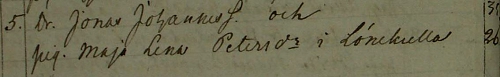 5. Dr. Jonas Johannes S. och
pig. Maja Lena Petersdr i Lönekulla 26